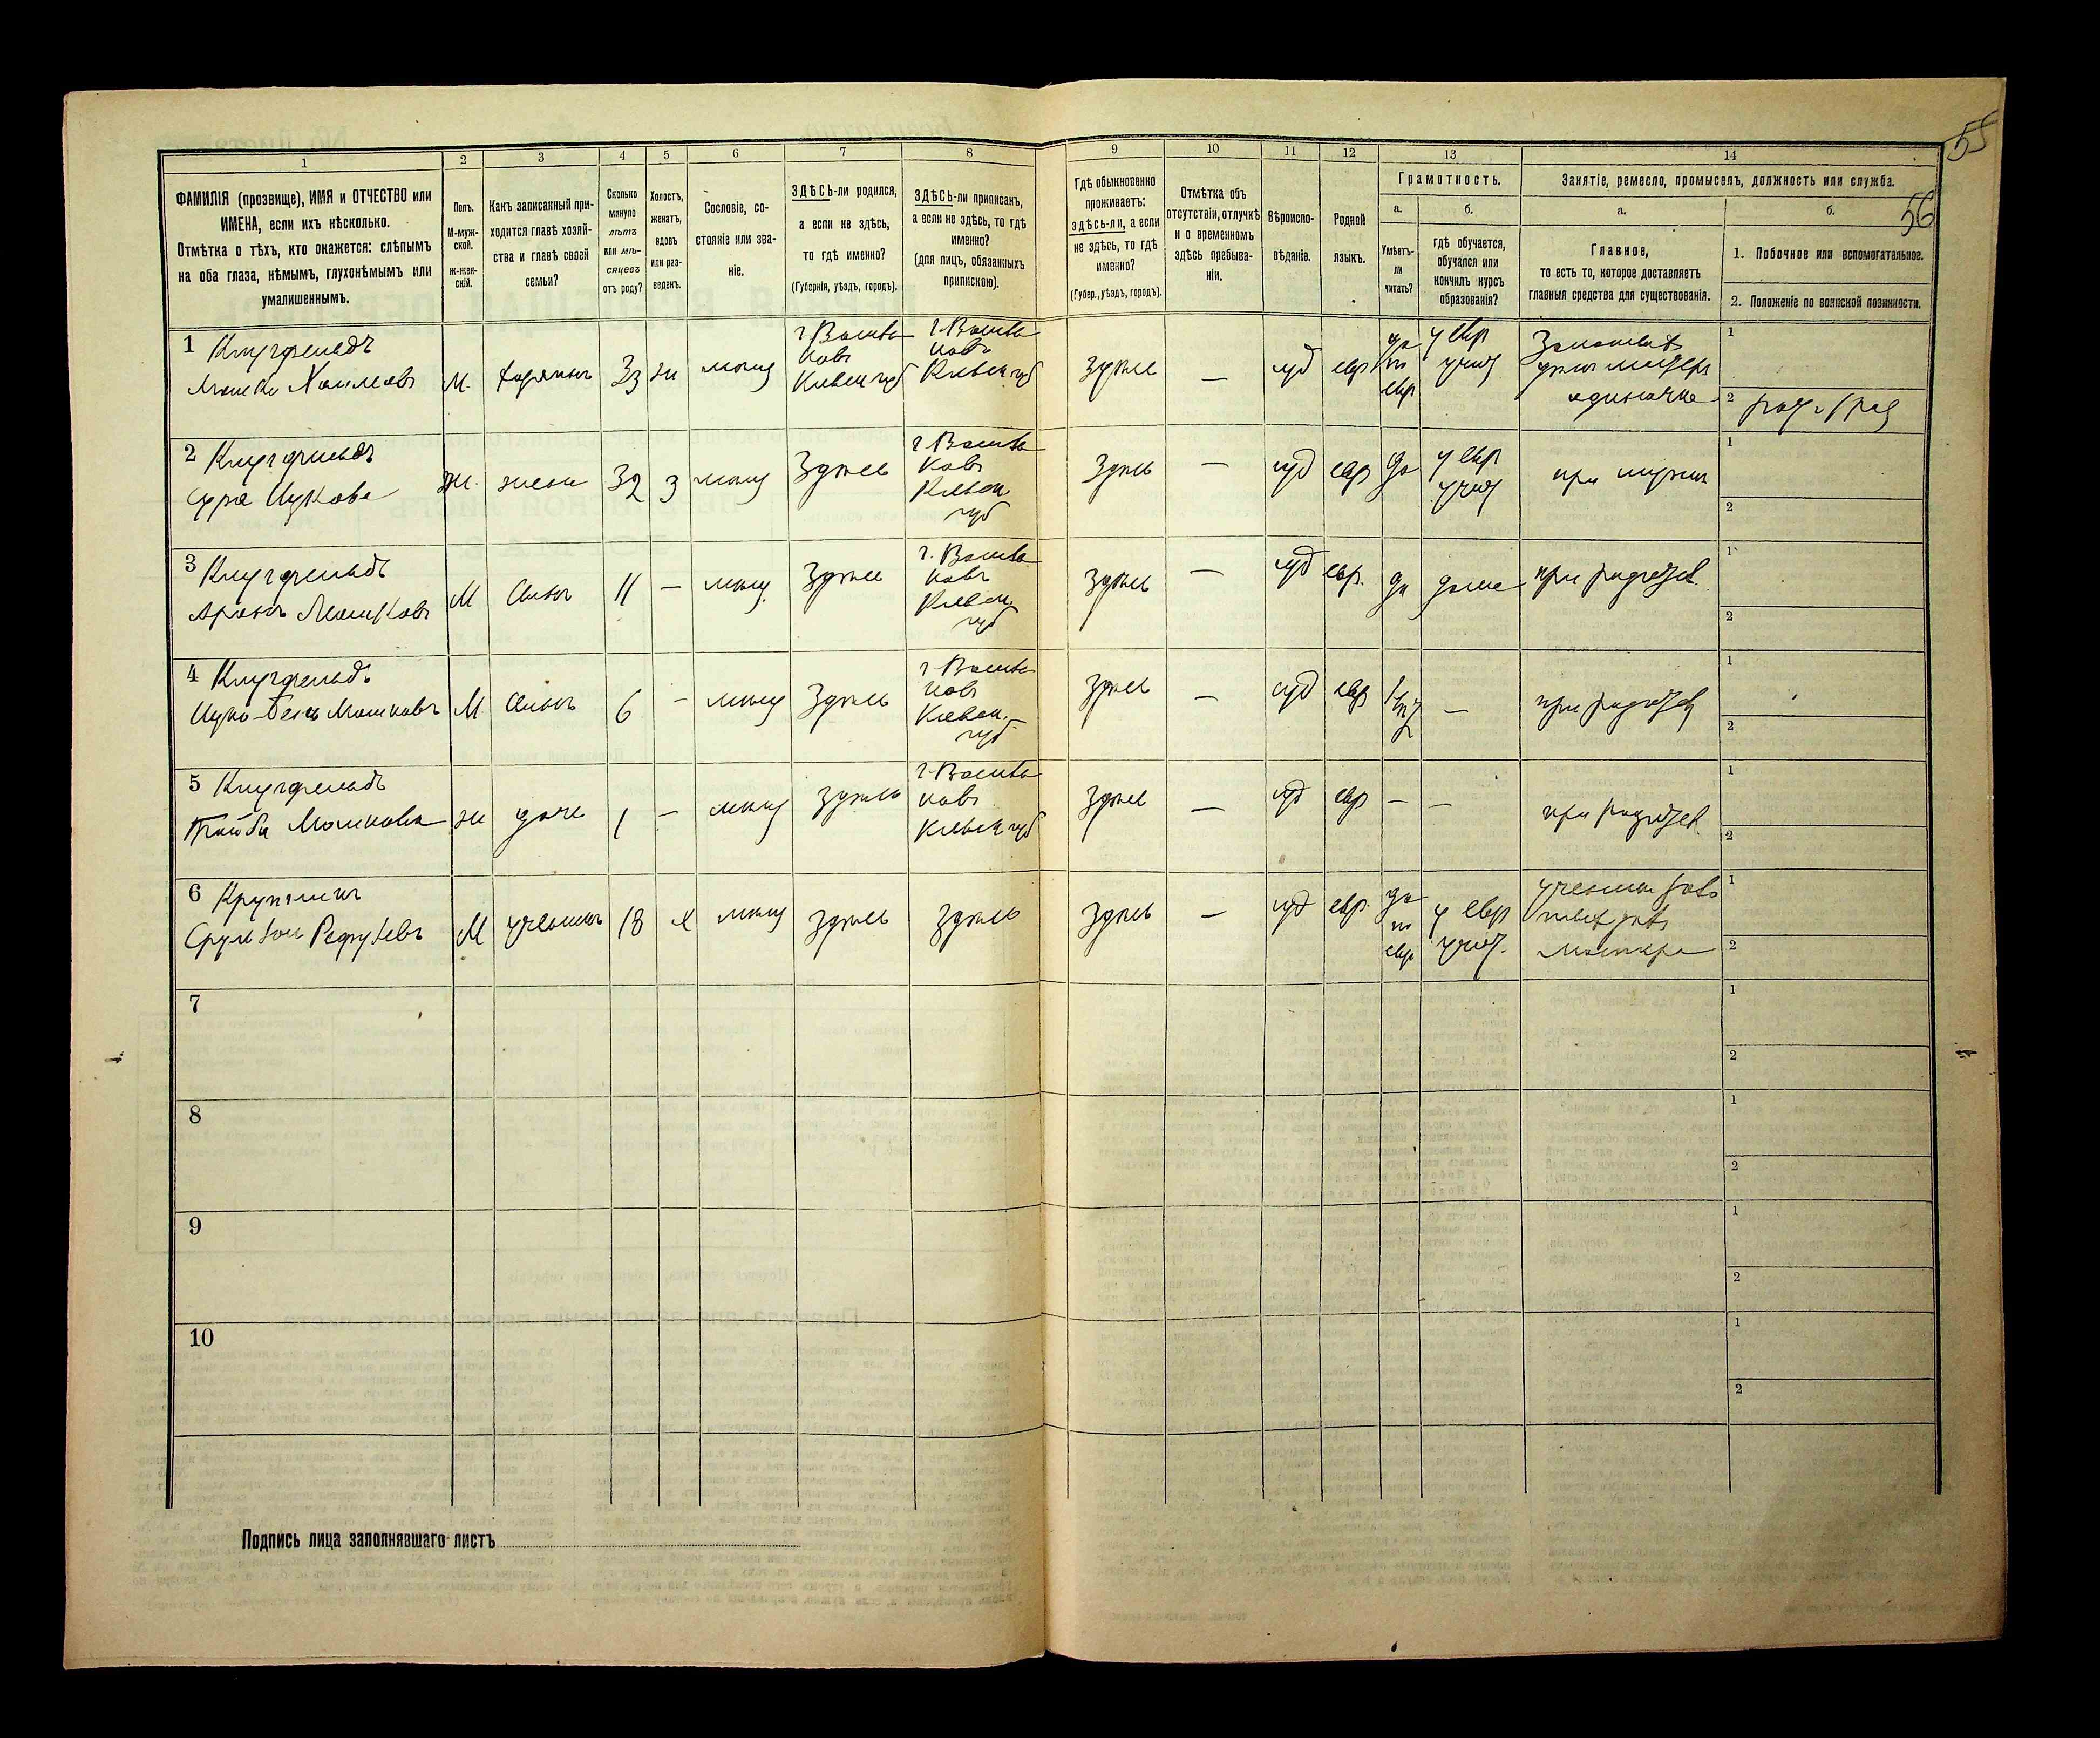 55
56
1
2
3
4
5
6
7
8
9
10
11
12
13
14
ФАМИЛІЯ (прозвище), ИМЯ и ОТЧЕСТВО или
ИМЕНА, если ихъ нѣсколько.
Отмѣтка о тѣхъ, кто окажется: слѣпымъ
на оба глаза, нѣмымъ, глухонѣмымъ или
умалишеннымъ.
Полъ.
М-муж-
ской.
ж-жен-
скій.
Какъ записанный при-
ходится главѣ хозяй-
ства и главѣ своей
семьи?
Сколько
минуло
лѣтъ
или мѣ-
сяцевъ
отъ роду?
Холостъ,
женатъ,
вдовъ
или раз-
веденъ.
Сословіе, со-
стояніе или зва-
ніе.
ЗДѢСЬ-ли родился,
а если не здѣсь,
то гдѣ именно?
(Губернія, уѣздъ, городъ).
ЗДѢСЬ-ли приписанъ,
а если не здѣсь, то гдѣ
именно?
(для лицъ, обязанныхъ
припискою).
Гдѣ обыкновенно
проживаетъ:
здѣсь-ли, а если
не здѣсь, то гдѣ
именно?
(Губер., уѣздъ, городъ).
Отмѣтка объ
отсутствіи, отлучкѣ
и о временномъ
здѣсь пребыва-
ніи.
Вѣроиспо-
вѣданіе.
Родной
языкъ.
Грамотность.
а.
Умѣетъ-
ли
читать?
б.
гдѣ обучается,
обучался или
кончилъ курсъ
образованія?
Занятіе, ремесло, промыселъ, должность или служба.
а.
Главное,
то есть то, которое доставляетъ
главныя средства для существованія.
б.
1. Побочное или вспомогательное.
2. Положеніе по воинской повинности.
1
Мошко Хаимовъ
М.
хозяинъ
33
ж
мѣщ
г. Василь
ковъ
Кіевск губ
г. Василь
ковъ
Кіевск губ
здѣсь
—
іуд
евр
да
по
евр
у евр
учит
одиночка
1
2
2
Сура Ицкова
ж.
жена
32
з
мѣщ
здѣсь
г. Василь
ковъ
Кіевск
губ
здѣсь
—
іуд
евр
да
у евр
учит
при мужѣ
1
2
3
Аронъ Мошковъ
М
сынъ
11
—
мѣщ
здѣсь
г. Василь
ковъ
Кіевск
губ
здѣсь
—
іуд
евр.
да
дома
при родител
1
2
4
Мошковъ
М
сынъ
6
—
мѣщ
здѣсь
г. Василь
ковъ
Кіевск.
губ
здѣсь
—
іуд
евр
нѣт
—
при родител
1
2
5
Мошкова
ж
дочь
1
—
мѣщ
здѣсь
г. Василь
ковъ
Кіевск губ
здѣсь
—
іуд
евр
—
—
при родител
1
2
6
М
ученикъ
18
х
мѣщ
здѣсь
здѣсь
здѣсь
—
іуд
евр.
да
по
евр
у евр
учит.
мастера
1
2
7
1
2
8
1
2
9
1
2
10
1
2
Подпись лица заполнявшаго листъ